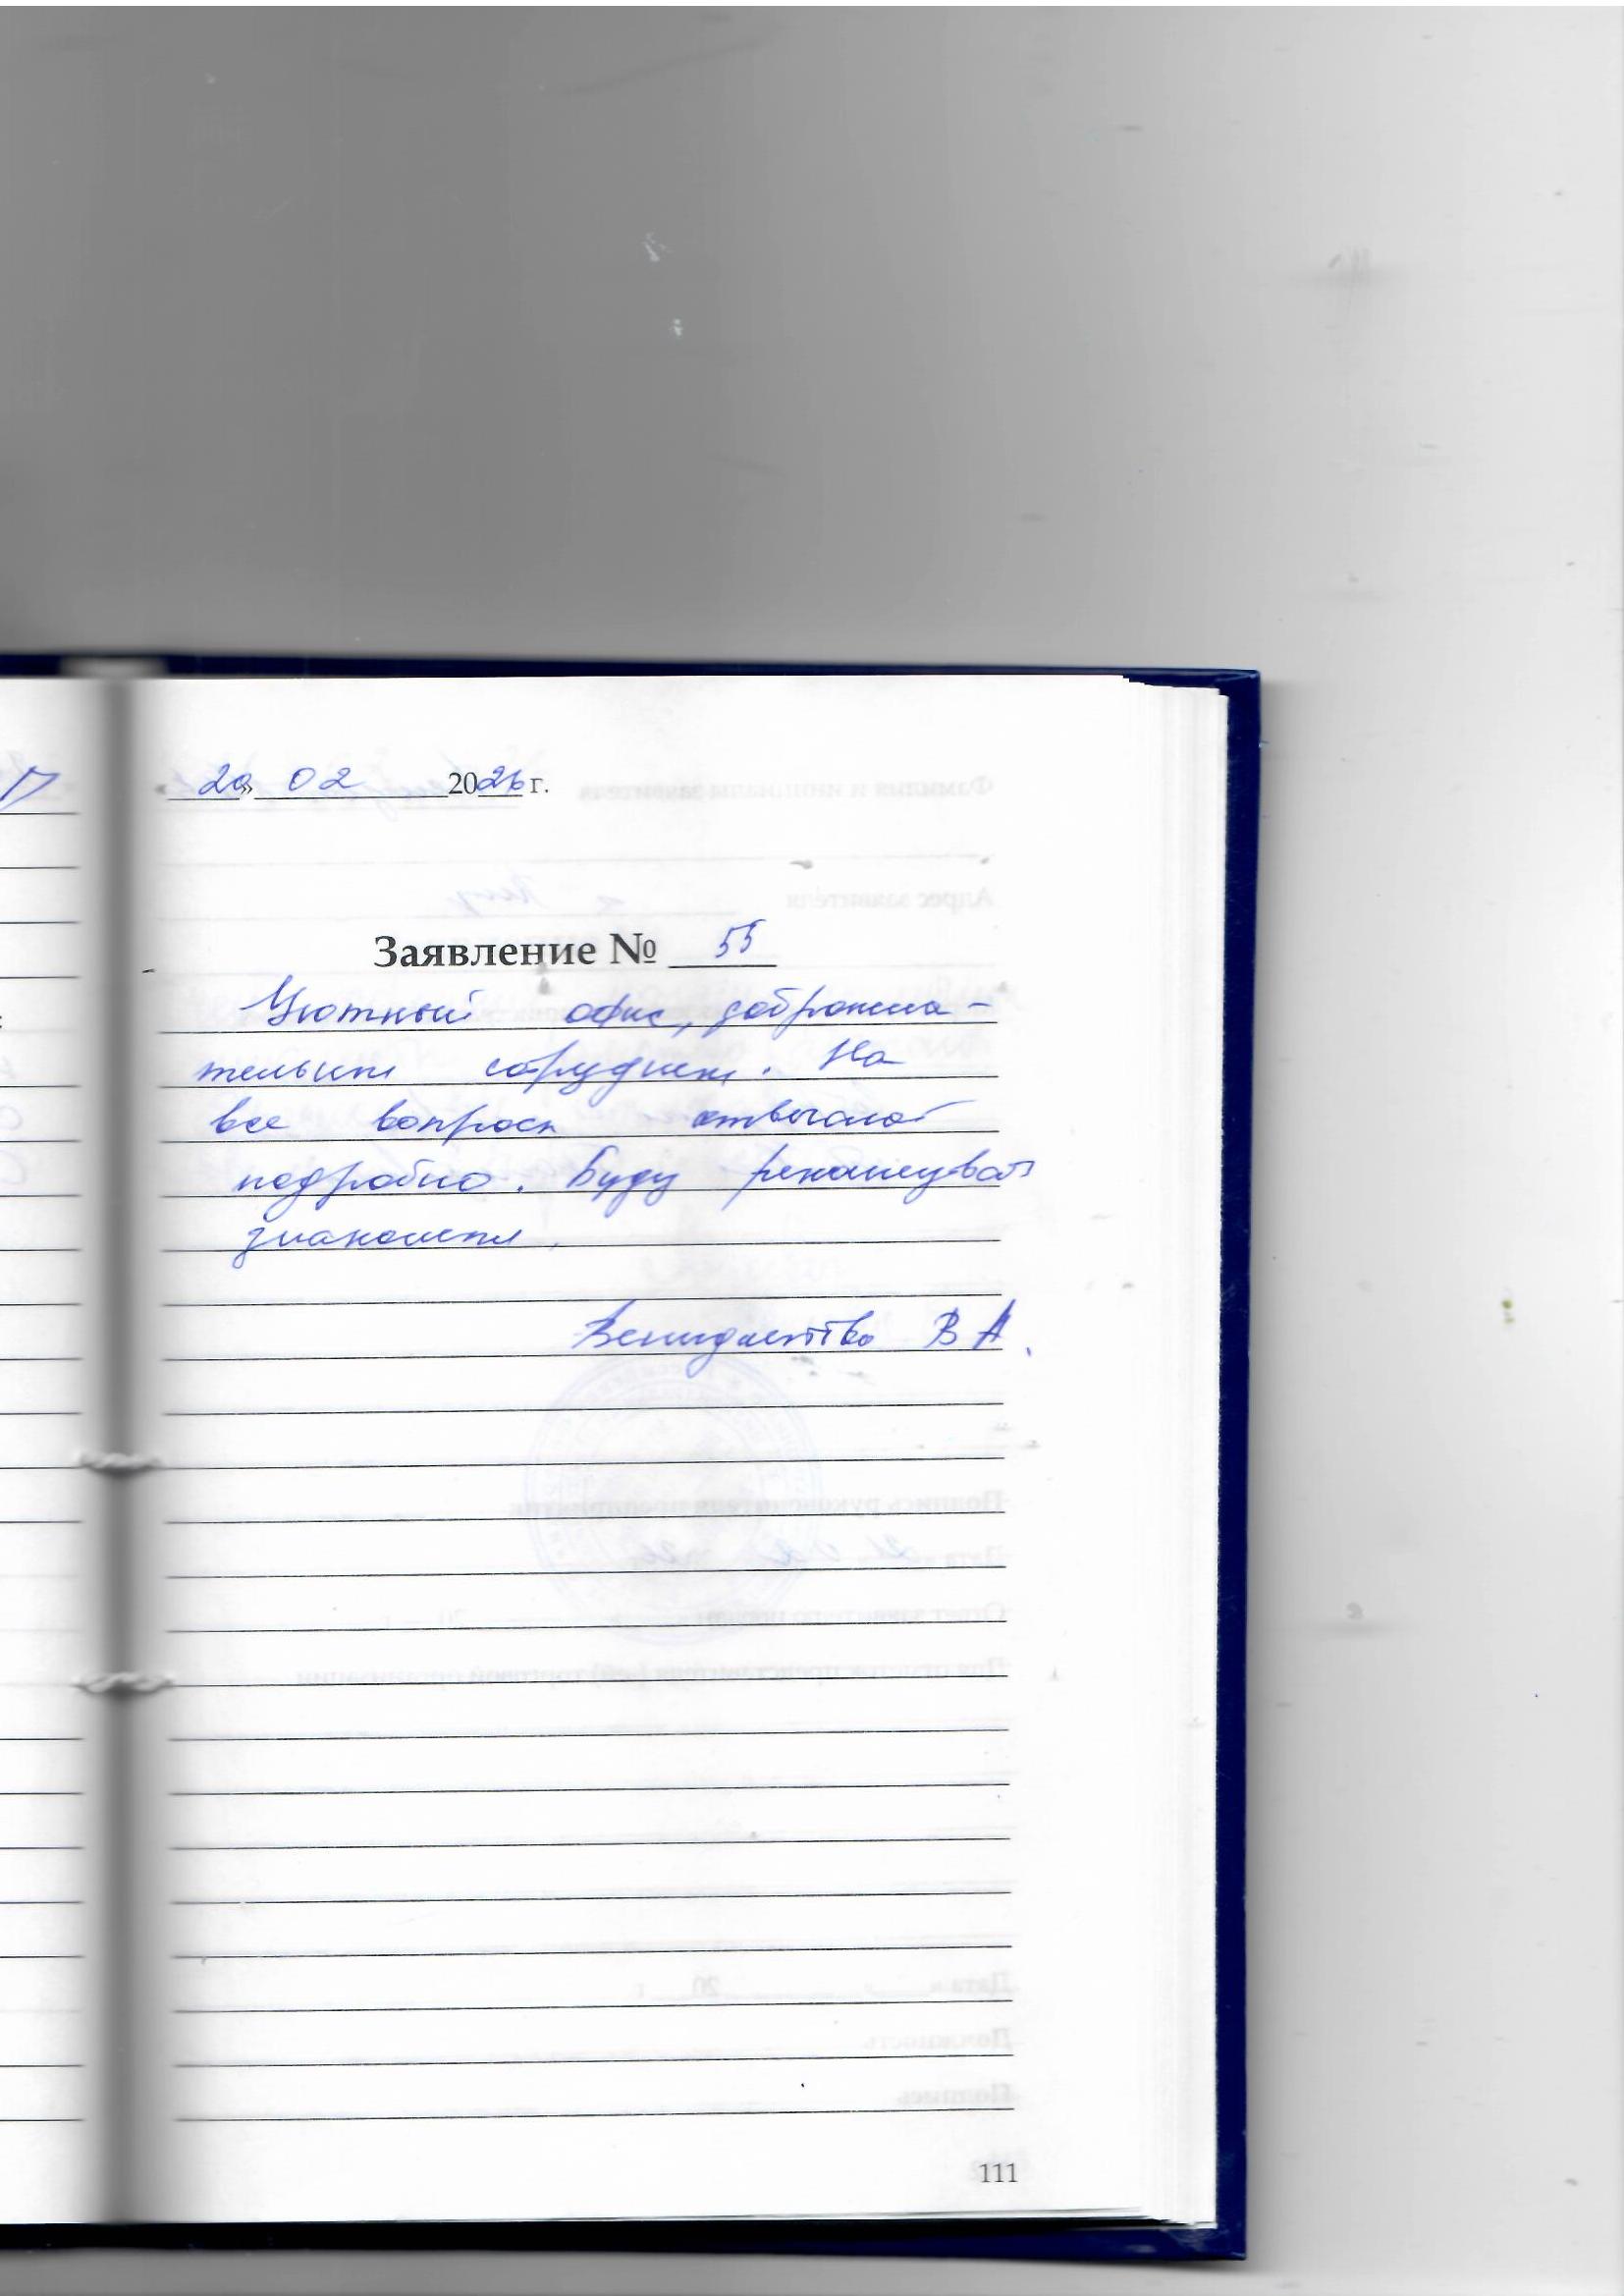 « 20 » 02 2026 г.
Заявление № 55
Уютный офис, доброжела-
тельные сотрудники. На
все вопросы отвечают
подробно. Буду рекомендовать
знакомым.
В А.
111